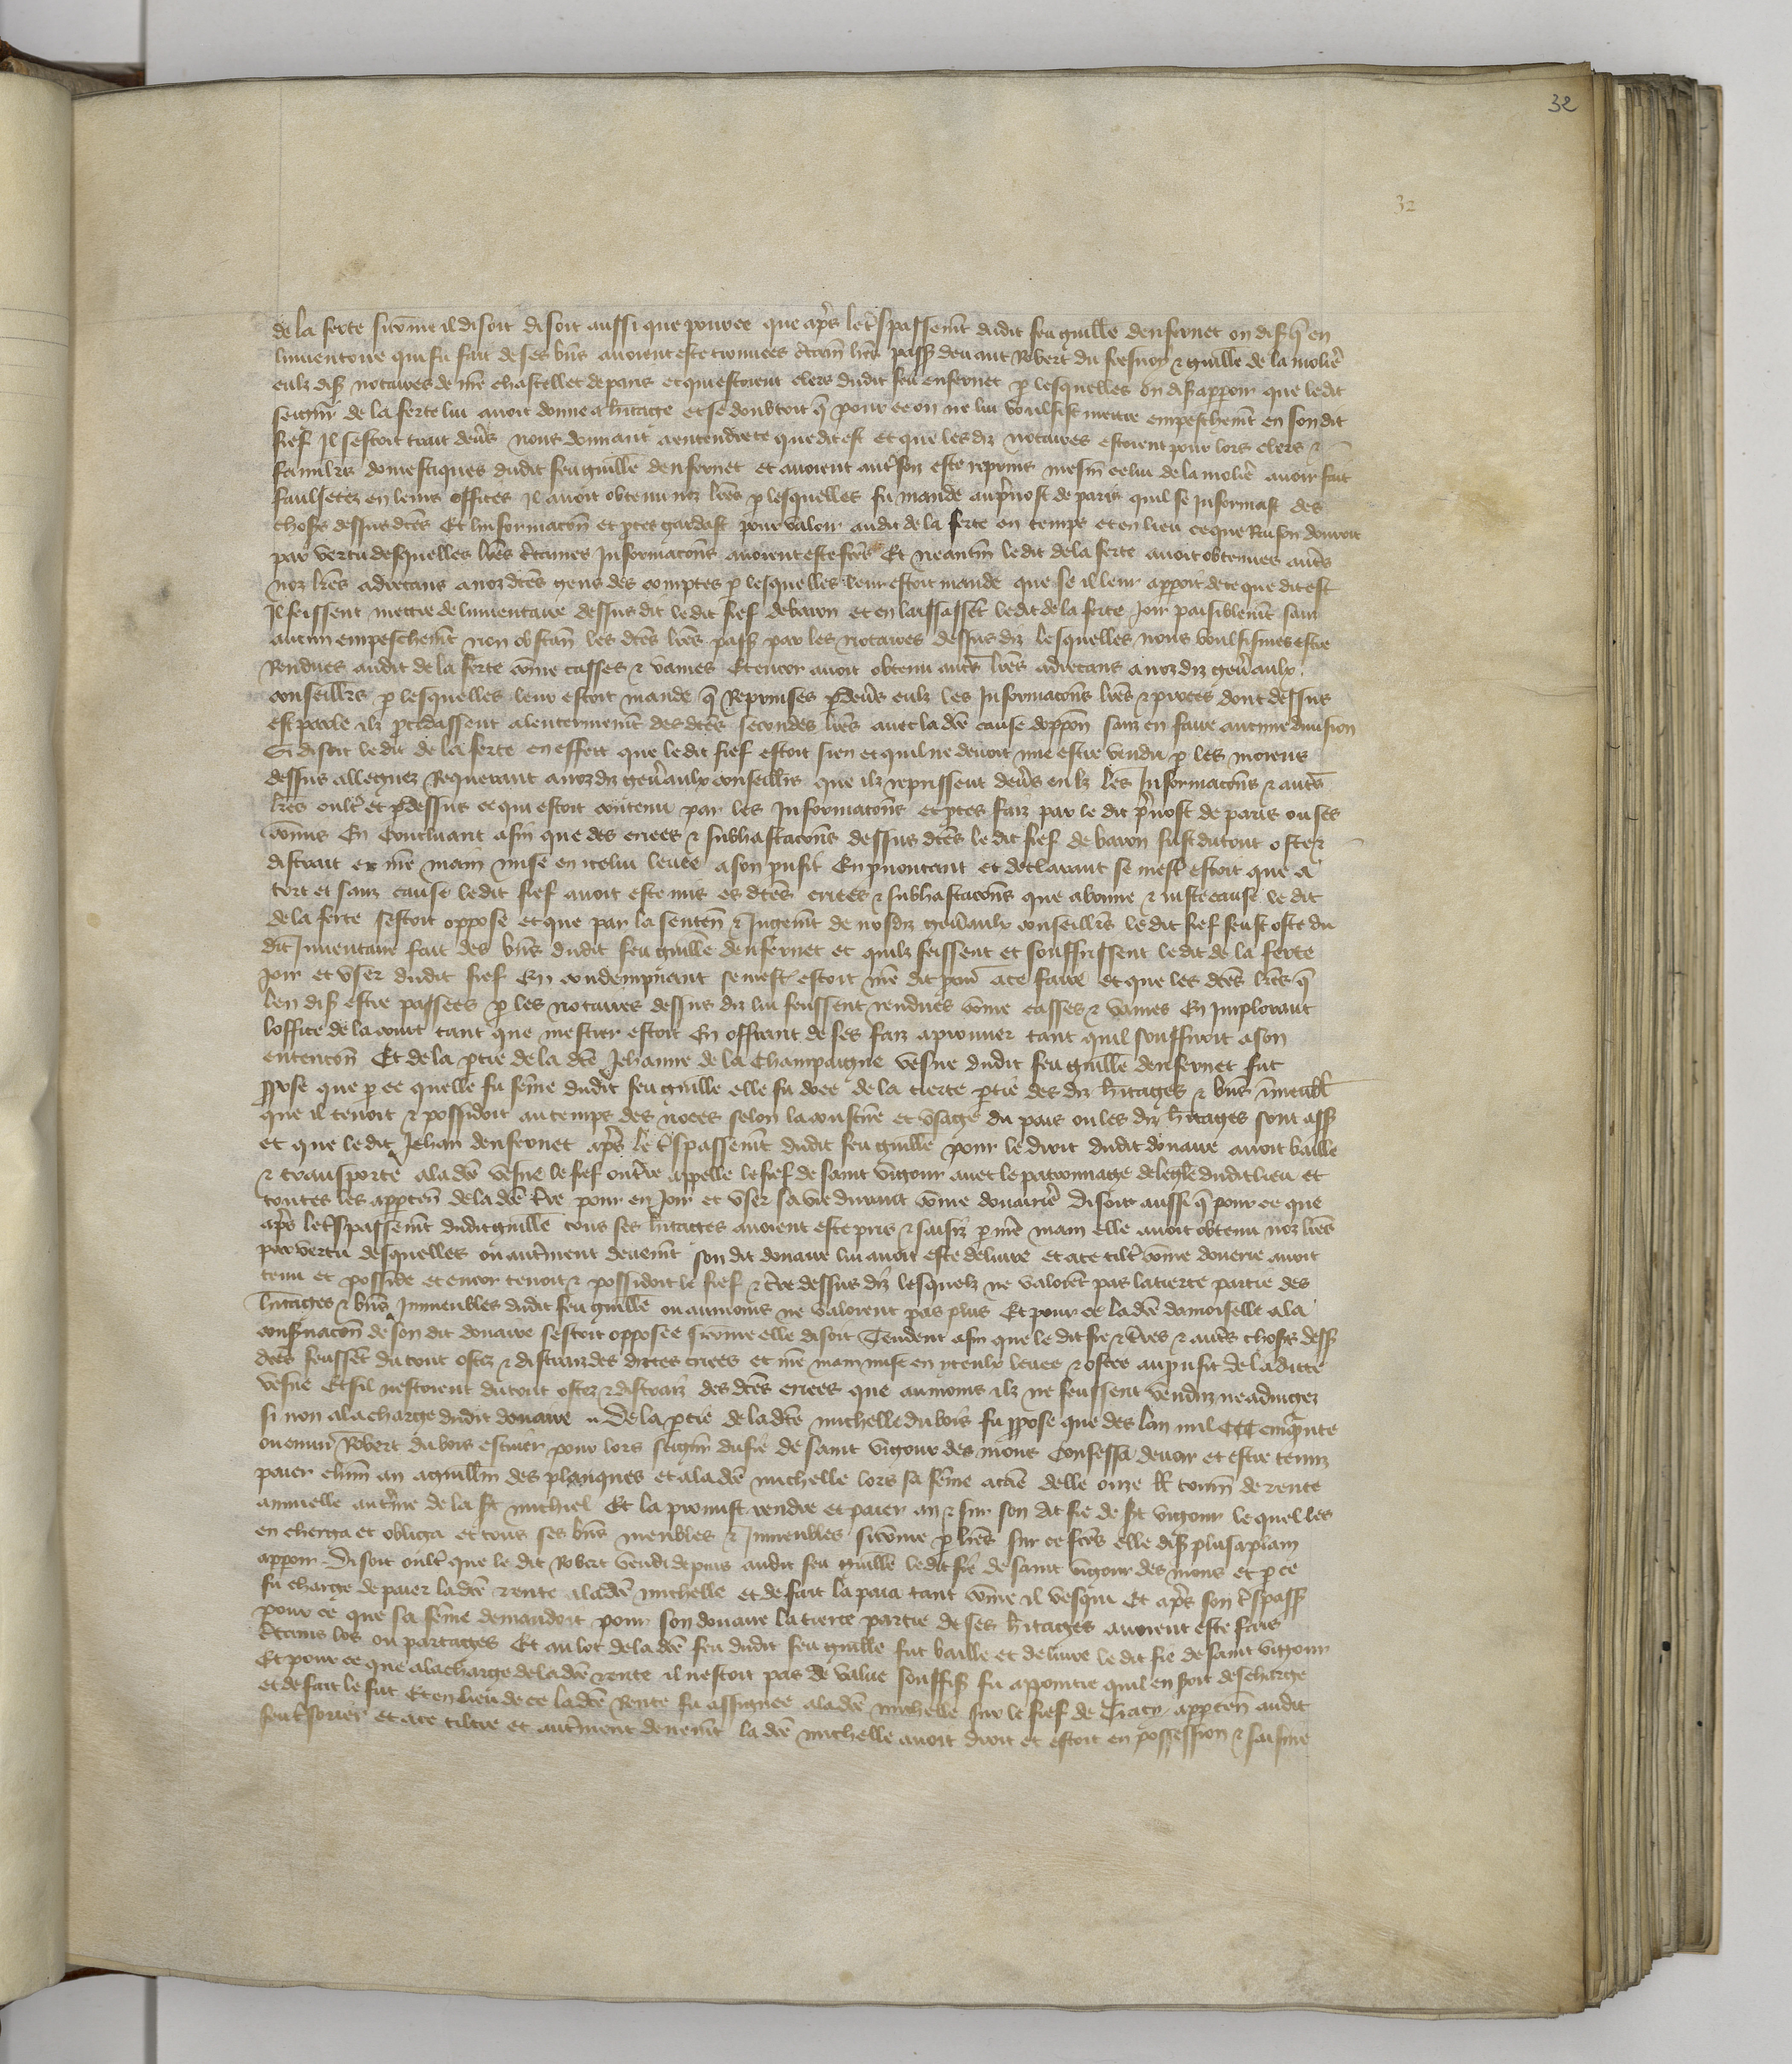 32
32
de la ferte sicōme il disoit disoit aussi que pource que ap̃s le t̃spassem̃t dudit feu guille denfernet on dis q̃ en
linuentoire qui fu fait de ses bñs auoient este trouuees c̃tain l̃res pass deuant Robert du fresnoy & guille de la moliẽ
eulz dis notaires de nr̃e chastellet de paris et qui estoient clers dudit feu enfernet p lesquelles on dis apparoir que ledit
seign̄r de la ferte lui auoit donne a h̃itage et se doubtoit q̃ pour ce on ne lui voulsist mettre empeschem̃t en son dit
fief Il sestoit trait deũs nous donnant a entendre ce que dit est et que les diz notaires estoient pour lors clers &
famil̃rs domestiques dudit feu guille denfernet et auoient aut̃foiz este reprins mesm̃ celui de la moliẽ auoir fait
faulsetez en leurs offices il auoit obtenu noz l̃res p lesquelles fu mande au p̃uost de paris quil se Informast des
choses dessus dc̃es Et linformacõn et proces gardast pour valoir audit de la ferte en temps et en lieu ce que Raison douroit
par vertu desquelles l̃res c̃taines Informacõns auoient este fc̃es Et neantm̃ ledit de la ferte auoit obtenues aut̃s
noz l̃res adrecans a noz dc̃es gens des comptes p lesquelles leur estoit mande que se il leur apparoit de ce que dit est
Il feissent mettre de linuentaire dessus dit ledit fief de baron et en laissassent ledit de la ferte joir paisiblem̃t sanz
aucun empeschem̃t non obstan̄ les dc̃es l̃res pass par les notaires dessus diz lesquelles nous voulsismes estre
Rendues audit de la ferte cōme casses & vaines Et encor auoit obtenu aut̃s l̃res adrecans a noz diz geñaulx
conseill̃rs p lesquelles leur estoit mande q̃ Reprinses p deũs eulz les Informacõns l̃res & proces dont dessus
est parle ilz procedassent a lenterinem̃t des dc̃es secondes l̃res auec la dc̃e cause doppõn sanz en faire aucune diuision
Si disoit ledit de la ferte en effect que ledit fief estoit sien et quil ne deuoit mie estre vendu p les moiens
dessus alleguez Requerant a noz diz geñaulx conseill̃rs que ilz reprissent deũs eulz les Informacõns & aut̃s
l̃res oult̃ et p dessus ce qui estoit contenu par les Informacõns et p̃ces faiz par le dit p̃uost de paris ou ses
cõmis En Concluant afin que des criees & subhastacõns dessus dc̃es le dit fief de baron fust du tout oste &
distrait et nr̃e main mise en icelui leuee a son p̃ufit En p̃nontant et declarant se mest̃ estoit que a
tort et sanz cause ledit fief auoit este mis es dc̃es criees & subhastacõns que a bonne & iuste cause le dit
de la ferte sestoit oppose et que par la senten̄ & Jugem̃t de nosdiz geñaulx conseill̃rs ledit fief feust oste du
dit Inuentaire fait des bñs dudit feu guille denfernet et quilz feissent et souffrissent ledit de la ferte
joir et vser dudit fief En condempnant se mest̃ estoit nr̃e dit procur̃ a ce faire et que les dc̃es l̃res q̃
len dis estre passees p les notaires dessus diz lui feussent rendues cōme casses & vaines En Implorant
loffice de la court tant que mestier estoit En offrant de ses faiz a prouuer tant quil souffiroit a son
entencõn Et de la ptie de la dc̃e Jehanne de la Champaigne vesue dudit feu guille denfernet fut
ppose que p ce quelle fu feme dudit feu guille elle fu doee de la tierce ptie des diz h̃itages & bñs īmeubl̃
que il tenoit & possidoit au temps des noces selon la coustũe et vsage du pais ou les diz h̃itages sont ass
et que ledit Jehan denfernet ap̃s le t̃spassem̃t dudit feu guille pour le droit dudit douaire auoit baille
& transporte a la dc̃e vesue le fief ou t̃re appelle le fief de saint vigour auec le patronnage de leglẽ dudit lieu et
toutes les apparten̄ de la dc̃e t̃re pour en joir et vser sa vie durant cōme douairiẽ Disoit aussi q̃ pour ce que
ap̃s le t̃spassem̃t dudit guille tous ses h̃itages auoient este pris & saisiz p nr̃e main elle auoit obtenu noz l̃res
par vertu desquelles ou aut̃ment deuem̃t son dit douaire lui auoit este deliure et a ce tilt̃ cōme doueriẽ auoit
tenu et posside et encor tenoit & possidoit le fief & t̃re dessus diz lesquelz ne valoient pas la tierce partie des
h̃itages & bñs Inmeubles dudit feu guille ou au moins ne valoient pas plus Et pour ce la dc̃e damoiselle a la
conseruacõn de son dit douaire sestoit opposee sicōme elle disoit Tendent afin que le dit fie & t̃res & aut̃s choses dess
dc̃es feussent du tout ostez & distraiz des dictes criees et nr̃e main mise en yceulx leuee & ostee au p̃ufit de la dicte
vesue Et sil nestoient du tout ostez & distraiz des dc̃es criees que au moins ilz ne feussent venduz ne adiugez
si non a la charge dudit douaire .. De la ptie de la dc̃e michelle du bois fu ppose que des lan mil CCC cinq̃nte
ou enuir̃ Robert du bois escuier pour lors seign̄r du fie de saint vigour des mons Confessa deuoir et estre tenuz
paier chūn an a guillm̃ des planques et a la dc̃e michelle lors sa feme a cāe delle onze l̃ tourn̄ de rente
annuelle au t̃me de la st̃ michiel Et la promist rendre et paier an & sur son dit fie de st̃ vigour lequel les
en cherga et obliga et tous ses bñs meubles & Inmeubles sicōme p l̃res sur ce fc̃es elle dis plus a plain
apparoir Disoit oult̃ que le dit Robert vendi depuis audit feu guille ledit fie de saint vigour des mons et p ce
fu charge de paier la dc̃e rente a la dc̃e michelle et de fait la paia tant cōme il vesqui Et ap̃s son t̃spass
pour ce que sa feme demandoit pour son douaire la tierce partie de ses h̃itages auoient este fais
c̃tains los ou partages Et au lot de la dc̃e feu dudit feu guille fut baille et deliure le dit fie de saint vigour
Et pour ce que a la charge de la dc̃e rente il nestoit pas de value souffis fu appointie quil en seroit descharge
et de fait le fut Et en lieu de ce la dc̃e Rente fu assignee a la dc̃e michelle sur le fief de Tracy apparten̄ audit
feu t̃sorier et a ce tiltre et aut̃ment deuem̃t la dc̃e michelle auoit droit et estoit en possession & saisine